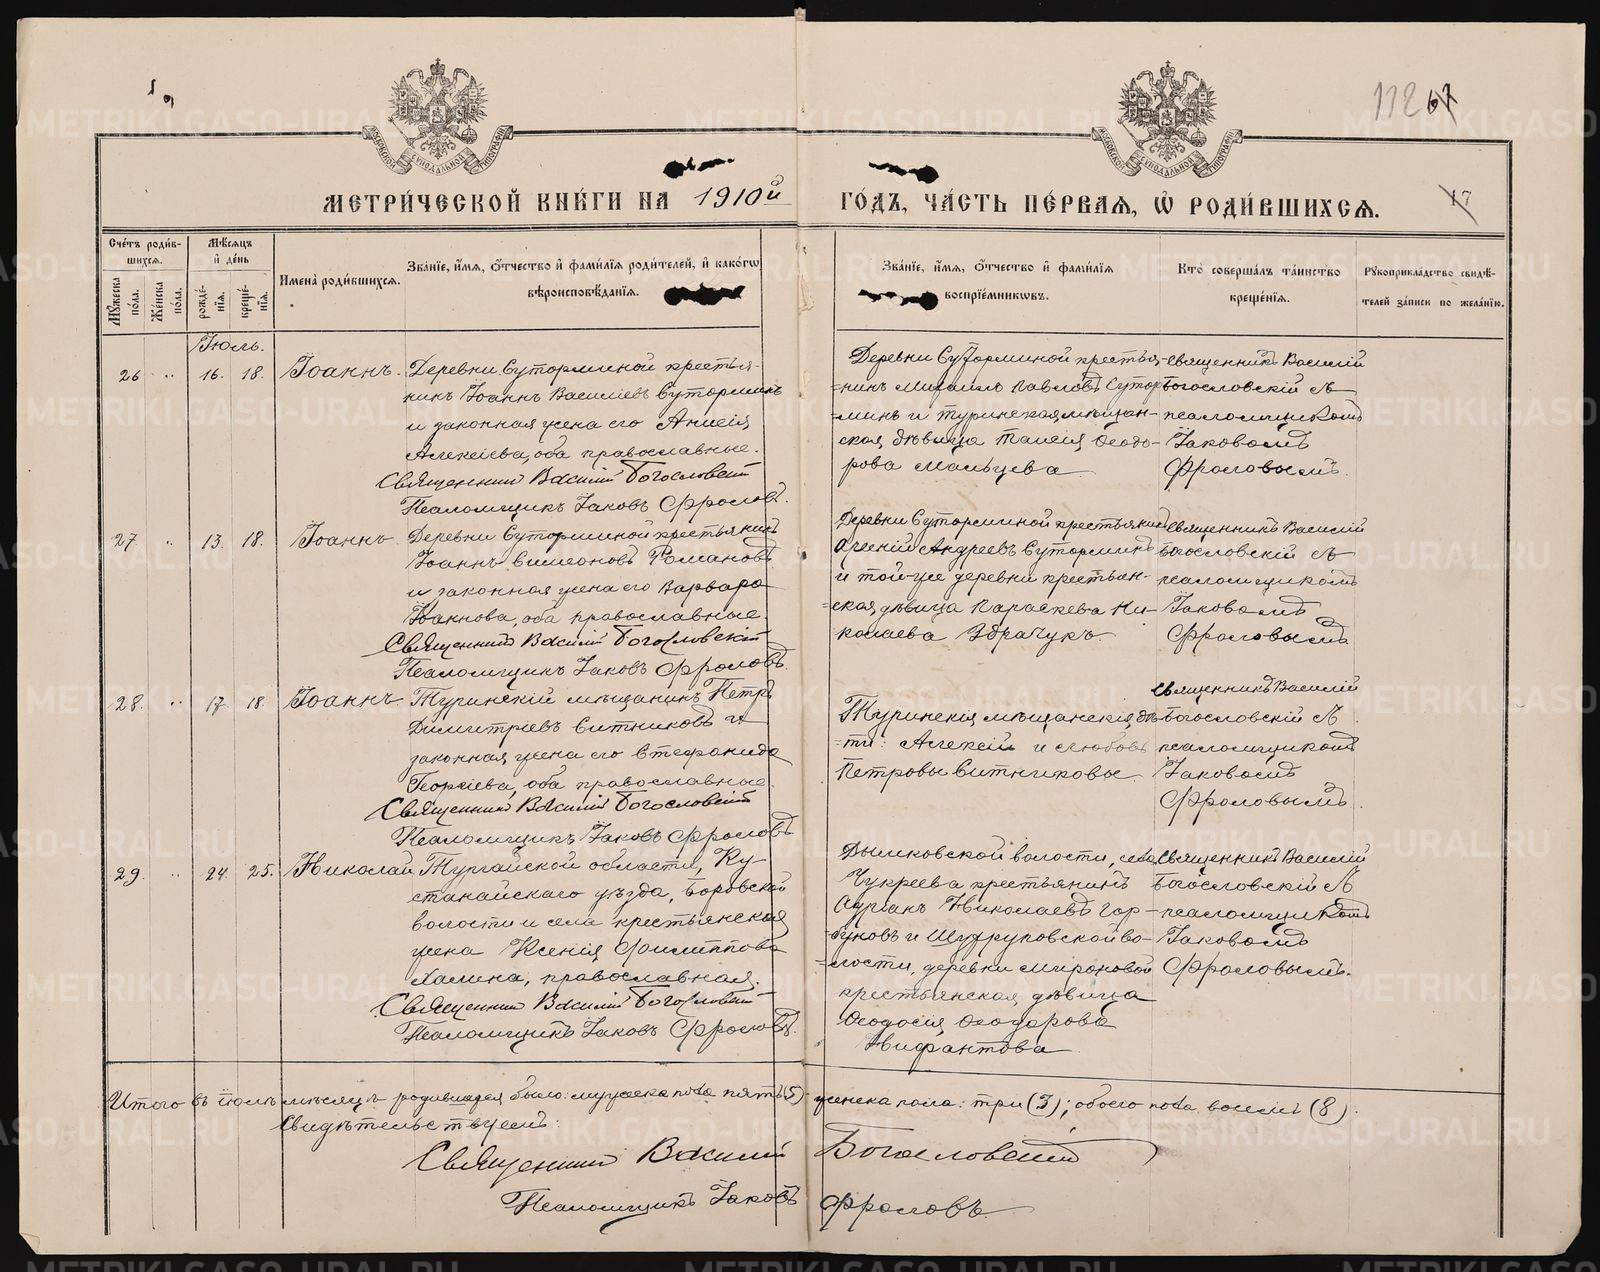 112 67
17
МЕТРИ́ЧЕСКОЙ КНИ́ГИ НА 1910й ГО́ДЪ, ЧА́СТЬ ПЕ́РВАЯ, Ѡ РОДИ́ВШИХСЯ.
Сче́тъ роди́вшихся.
Мꙋ́жеска по́ла.
Же́нска по́ла.
Мѣ́сяцъ и҆ де́нь
рожде́нїя.
креще́нїя.
Имена̀ роди́вшихся.
Зва́нїе, и҆́мя, ѻ҆́тчество и҆ фами́лїя роди́телей, и҆ како́гѡ
вѣроисповѣ́данїя.
Зва́нїе, и҆́мя, ѻ҆́тчество и҆ фами́лїя
воспрїе́мникѡвъ.
Кто̀ соверша́лъ та́инство
креще́нїя.
Рꙋкоприкла́дство свидѣ́-
телей за́писи по жела́нїю.
Іюль.
26 " 16. 18. Іоаннъ.
Деревни Сутормин​ой крестья-
нинъ Іоаннъ Василіевъ Суторминъ
и законная жена его Анисія
Алексіева, оба православные.
Священникъ Василій Богословскій
Псаломщикъ Іаковъ Фроловъ.
Деревни Суторминой крестья-
нинъ Михаилъ Павловъ Сутор-
минъ и туринская мѣщан-
ская дѣвица Таисія Ѳеодо-
рова Мальцева
Священникъ Василій
Богословскій съ
псаломщикомъ
Іаковомъ
Фроловымъ.
27. " 13. 18. Іоаннъ
Деревни Суторминой крестьянинъ
Іоаннъ Симеоновъ Романовъ
и законная жена его Варвара
Іоаннова, оба православные.
Священникъ Василій Богословскій
Псаломщикъ Іаковъ Фроловъ.
Деревни Суторминой крестьянинъ
Арсеній Андреевъ Суторминъ
и той-же деревни крестьян-
ская дѣвица Параскева Ни-
колаева
Священникъ Василій
Богословскій съ
псаломщикомъ
Іаковомъ
Фроловымъ
28. " 17. 18. Іоаннъ
Туринскій мѣщанинъ Петръ
Димитріевъ Ситниковъ и
законная жена его Стефанида
Георгіева, оба православные.
Священникъ Василій Богословскій
Псаломщикъ Іаковъ Фроловъ
Туринскія мѣщанскія дѣ-
ти: Алексій и Любовь
Петровы Ситниковы.
Священникъ Василій
Богословскій съ
псаломщикомъ
Іаковомъ
Фроловымъ.
29. " 24. 25. Николай
Тургайской области, Ку-
станайскаго уѣзда, Боровской
волости и села крестьянская
жена Ксенія Филиппова
Халина, православная.
Священникъ Василій Богословскій
Псаломщикъ Іаковъ Фроловъ.
Дымковской волости, села
Чукреева крестьянинъ
Адріанъ Николаевъ Гор-
буновъ и Шухруповской во-
лости, деревни Мироновой
крестьянская дѣвица
Ѳеодосія Ѳеодорова
Нифантова
Священникъ Василій
Богословскій съ
псаломщикомъ
Іаковомъ
Фроловымъ.
Итого въ іюлѣ мѣсяцѣ родившихся было: мужеска пола пять (5) женска пола: три (3); обоего пола восемь (8).
Свидѣтельствуемъ:
Священникъ Василій Богословскій
Псаломщикъ Іаковъ Фроловъ.
METRIKI.GASO-URAL.RU